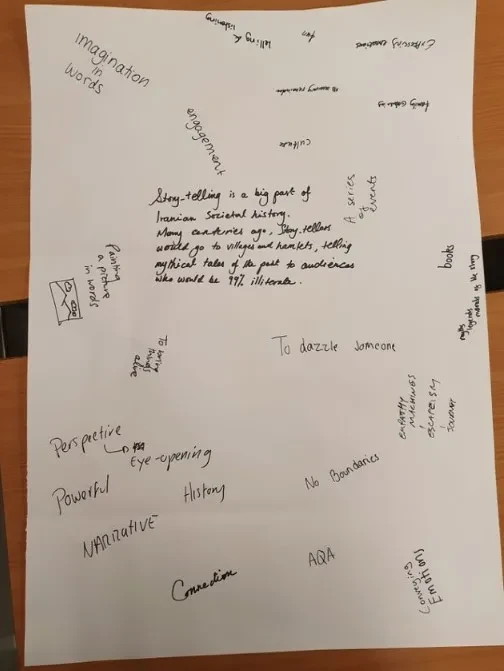 telling & listening
fun
Expressing emotions
Imagination
in
words
memory
family gathering
engagement
culture
A series
of
events
Story-telling is a big part of
Iranian Societal history.
Many centuries ago, Story-tellers
would go to villages and hamlets, telling
mythical tales of the past to audiences
who would be 99% illiterate.
Painting
a picture
in words
books
myths
legends
morals of the story
To bring
things
alive
To dazzle someone
EMPATHY
MACHINES
ESCAPEISM
JOURNEY
Perspective
Eye-opening
Powerful
History
No Boundaries
NARRATIVE
Connection
AQA
Conveying
Emotions